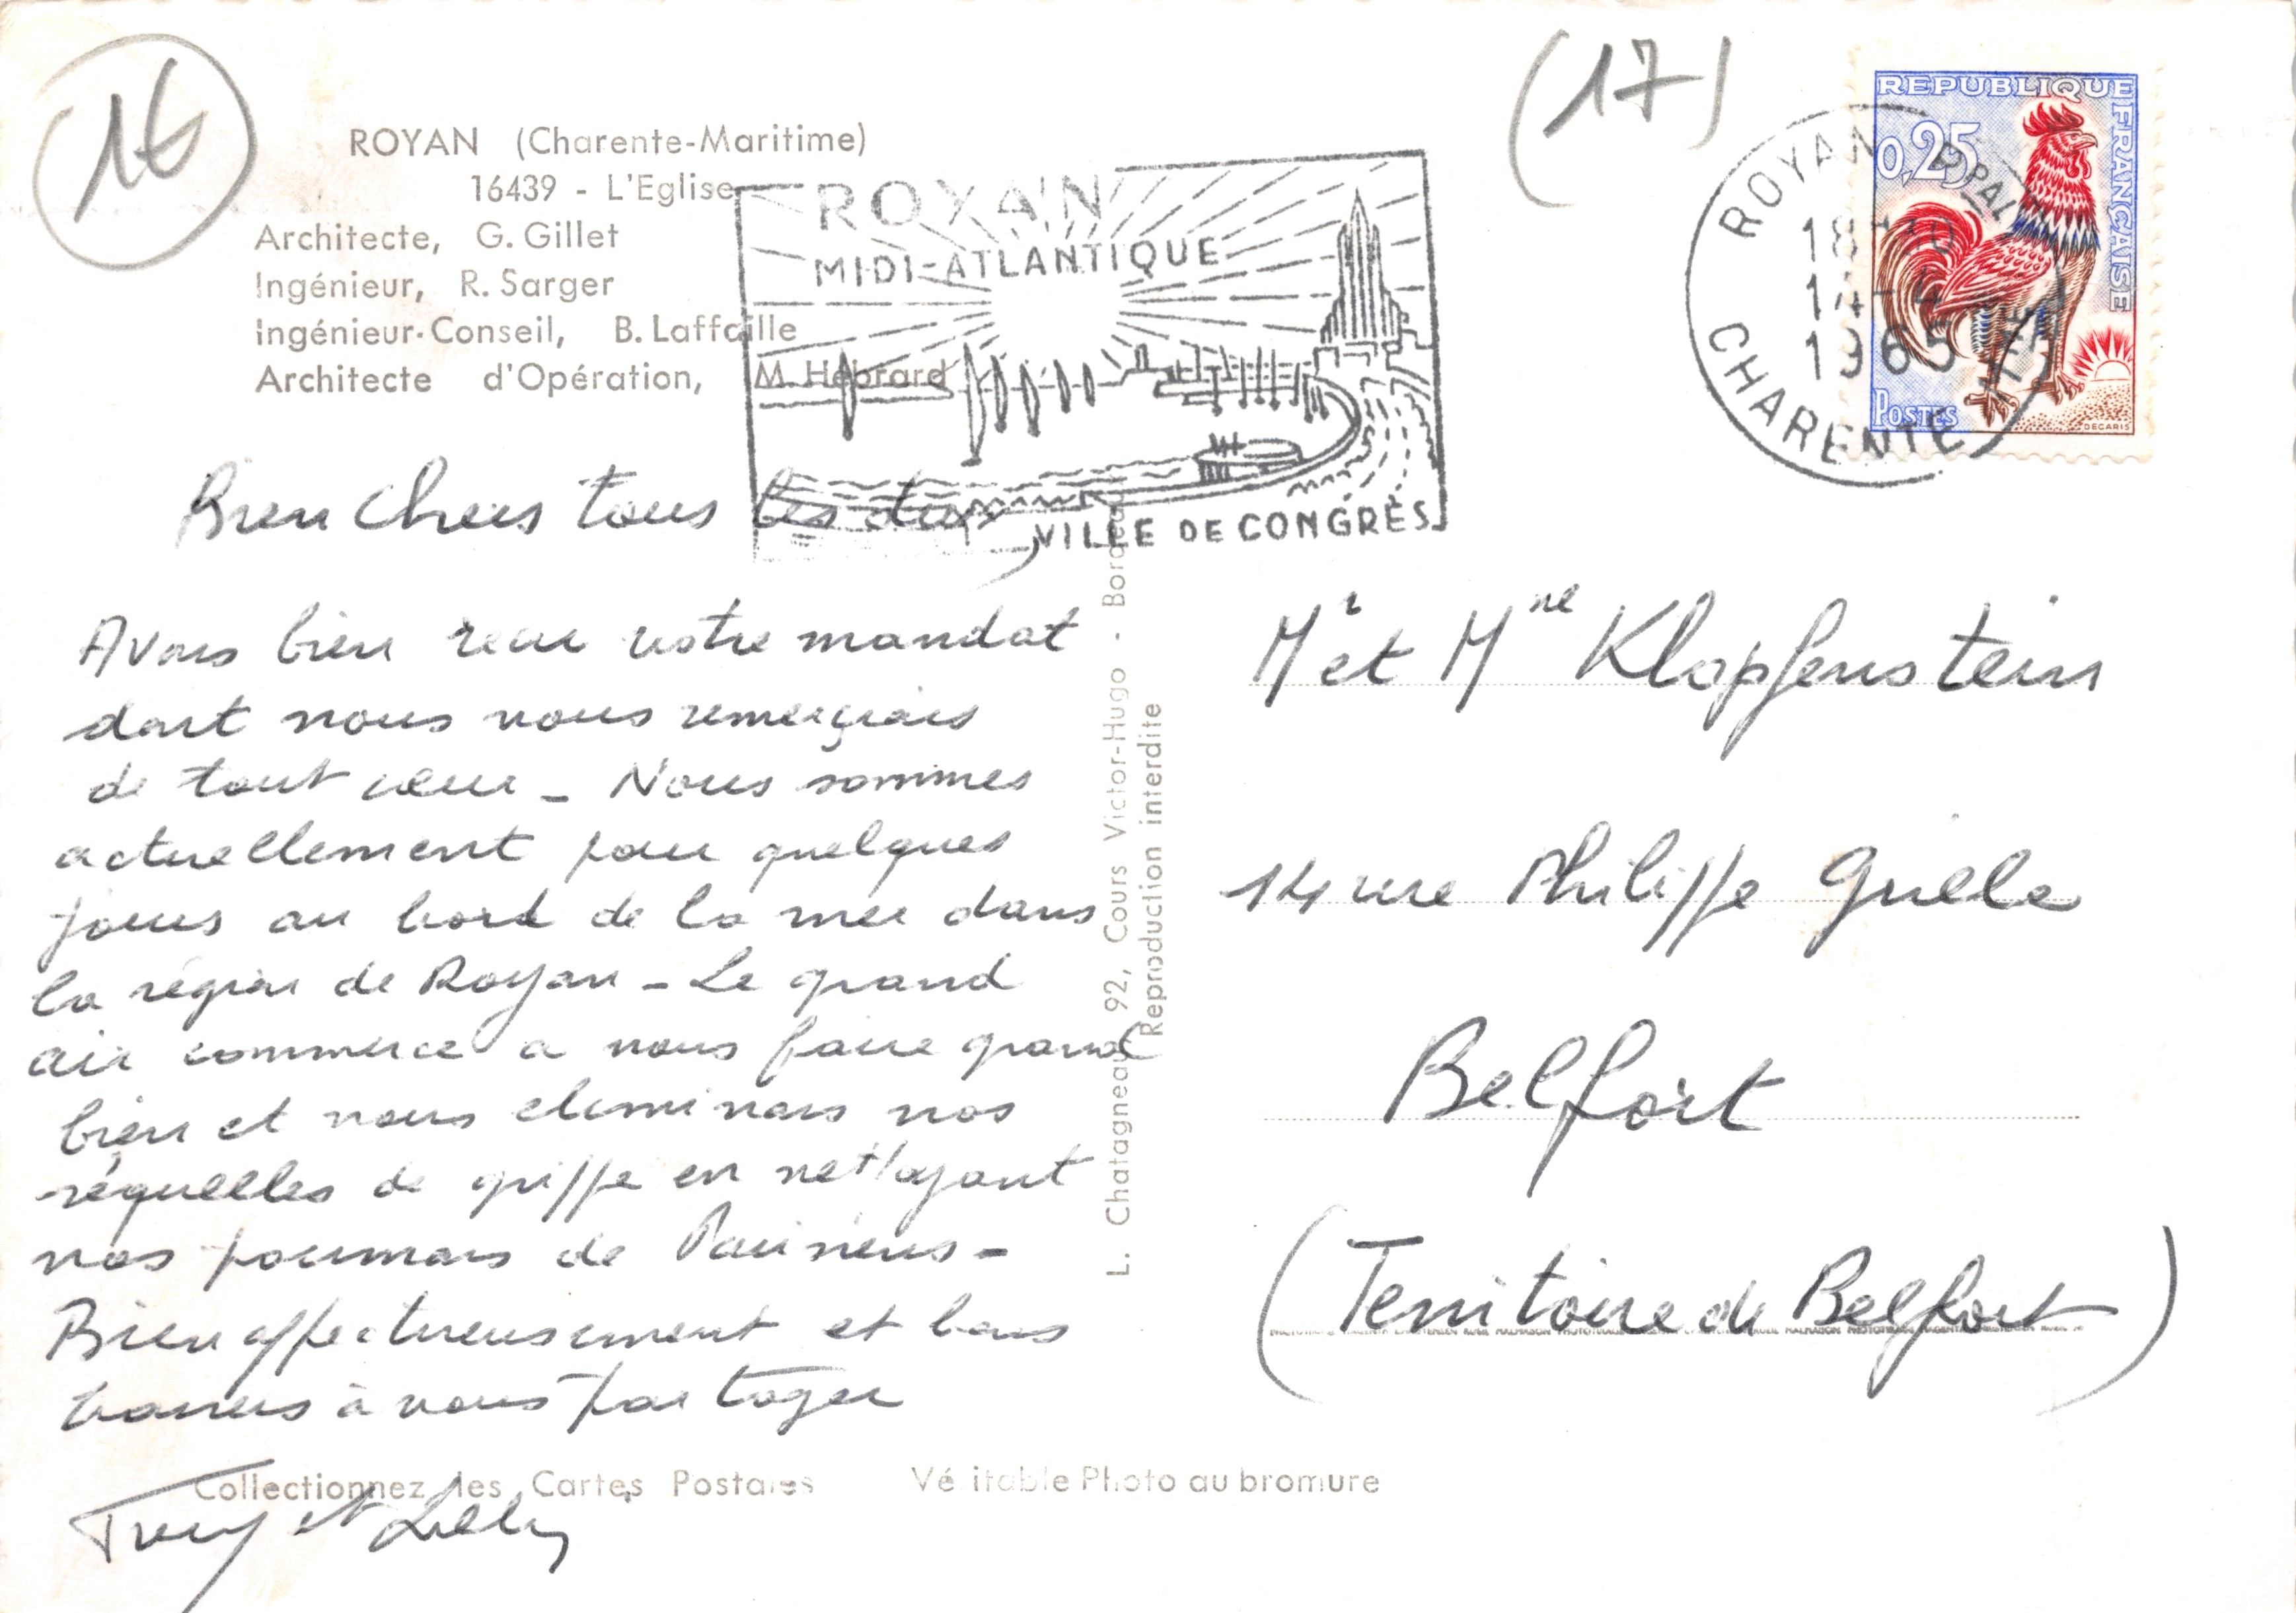 16
(17)
ROYAN (Charente-Maritime)
16439 - L'Eglise
Architecte, G. Gillet
Ingénieur, R. Sarger
Ingénieur-Conseil, B. Laffaille
Architecte d'Opération, M. Hébrard
ROYAN
MIDI-ATLANTIQUE
VILLE DE CONGRÈS
REPUBLIQUE FRANÇAISE
0,25
POSTES
DECARIS
ROYAN PPAL
18H
14-4
1965
CHARENTE MME
Bien Chers tous les deux,
Avons bien reçu votre mandat
dont nous vous remerçions
de tout cœur - Nous sommes
actuellement pour quelques
jours au bord de la mer dans
la région de Royan - Le grand
air commence a nous faire grand
bien et nous eliminons nos
séquelles de grippe en nettoyant
nos poumons de Parisiens -
Bien affectueusement et bons
baisers à vous partager
et Lilly
L. Chatagneau 92, Cours Victor-Hugo - Bordeaux
Reproduction interdite
Mr et Mme Klopfenstein
14 rue Philippe Grille
Belfort
(Territoire de Belfort)
Collectionnez les Cartes Postales Véritable Photo au bromure